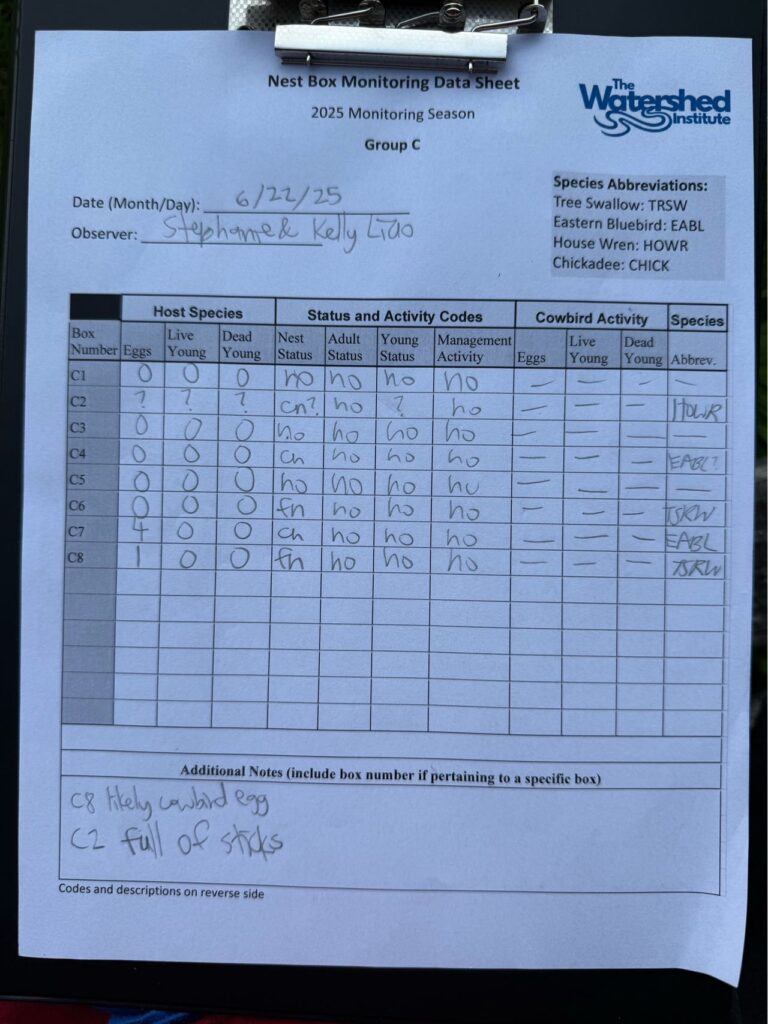 Nest Box Monitoring Data Sheet
2025 Monitoring Season
Group C
The Watershed Institute
Date (Month/Day): 6/22/25
Observer: Stephanie & Kelly Liao
Species Abbreviations:
Tree Swallow: TRSW
Eastern Bluebird: EABL
House Wren: HOWR
Chickadee: CHICK
Host Species Status and Activity Codes Cowbird Activity Species
Box Number Eggs Live Young Dead Young Nest Status Adult Status Young Status Management Activity Eggs Live Young Dead Young Abbrev.
C1 0 0 0 no no no no — — — —
C2 ? ? ? cn? no ? no — — — HOWR
C3 0 0 0 no no no no — — — —
C4 0 0 0 cn no no no — — — EABL?
C5 0 0 0 no no no no — — — —
C6 0 0 0 fn no no no — — — TSRW
C7 4 0 0 cn no no no — — — EABL
C8 1 0 0 fn no no no — — — TSRW
Additional Notes (include box number if pertaining to a specific box)
C8 likely cowbird egg
C2 full of sticks
Codes and descriptions on reverse side